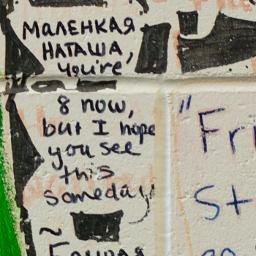 МАЛЕНКАЯ
НАТАША,
you're
8 now,
but I hope
you see
this
someday
~
"Fri
St